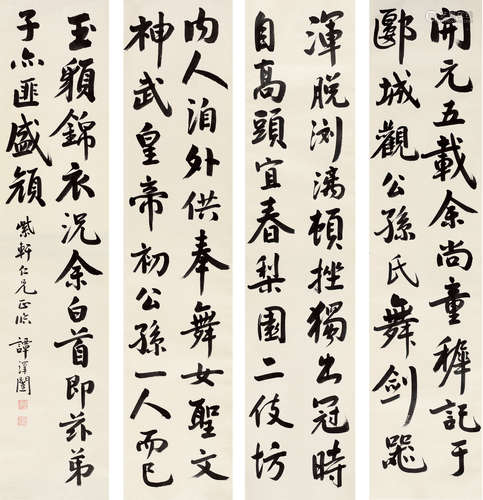 開元五載余尚童稚記于
郾城觀公孫氏舞劍器
渾脫浏漓頓挫獨出冠時
自高頭宜春梨園二伎坊
內人洎外供奉舞女聖文
神武皇帝初公孫一人而已
玉貌錦衣況余白首即茲弟
子亦匪盛顏
紫軒仁兄正临
譚澤闓